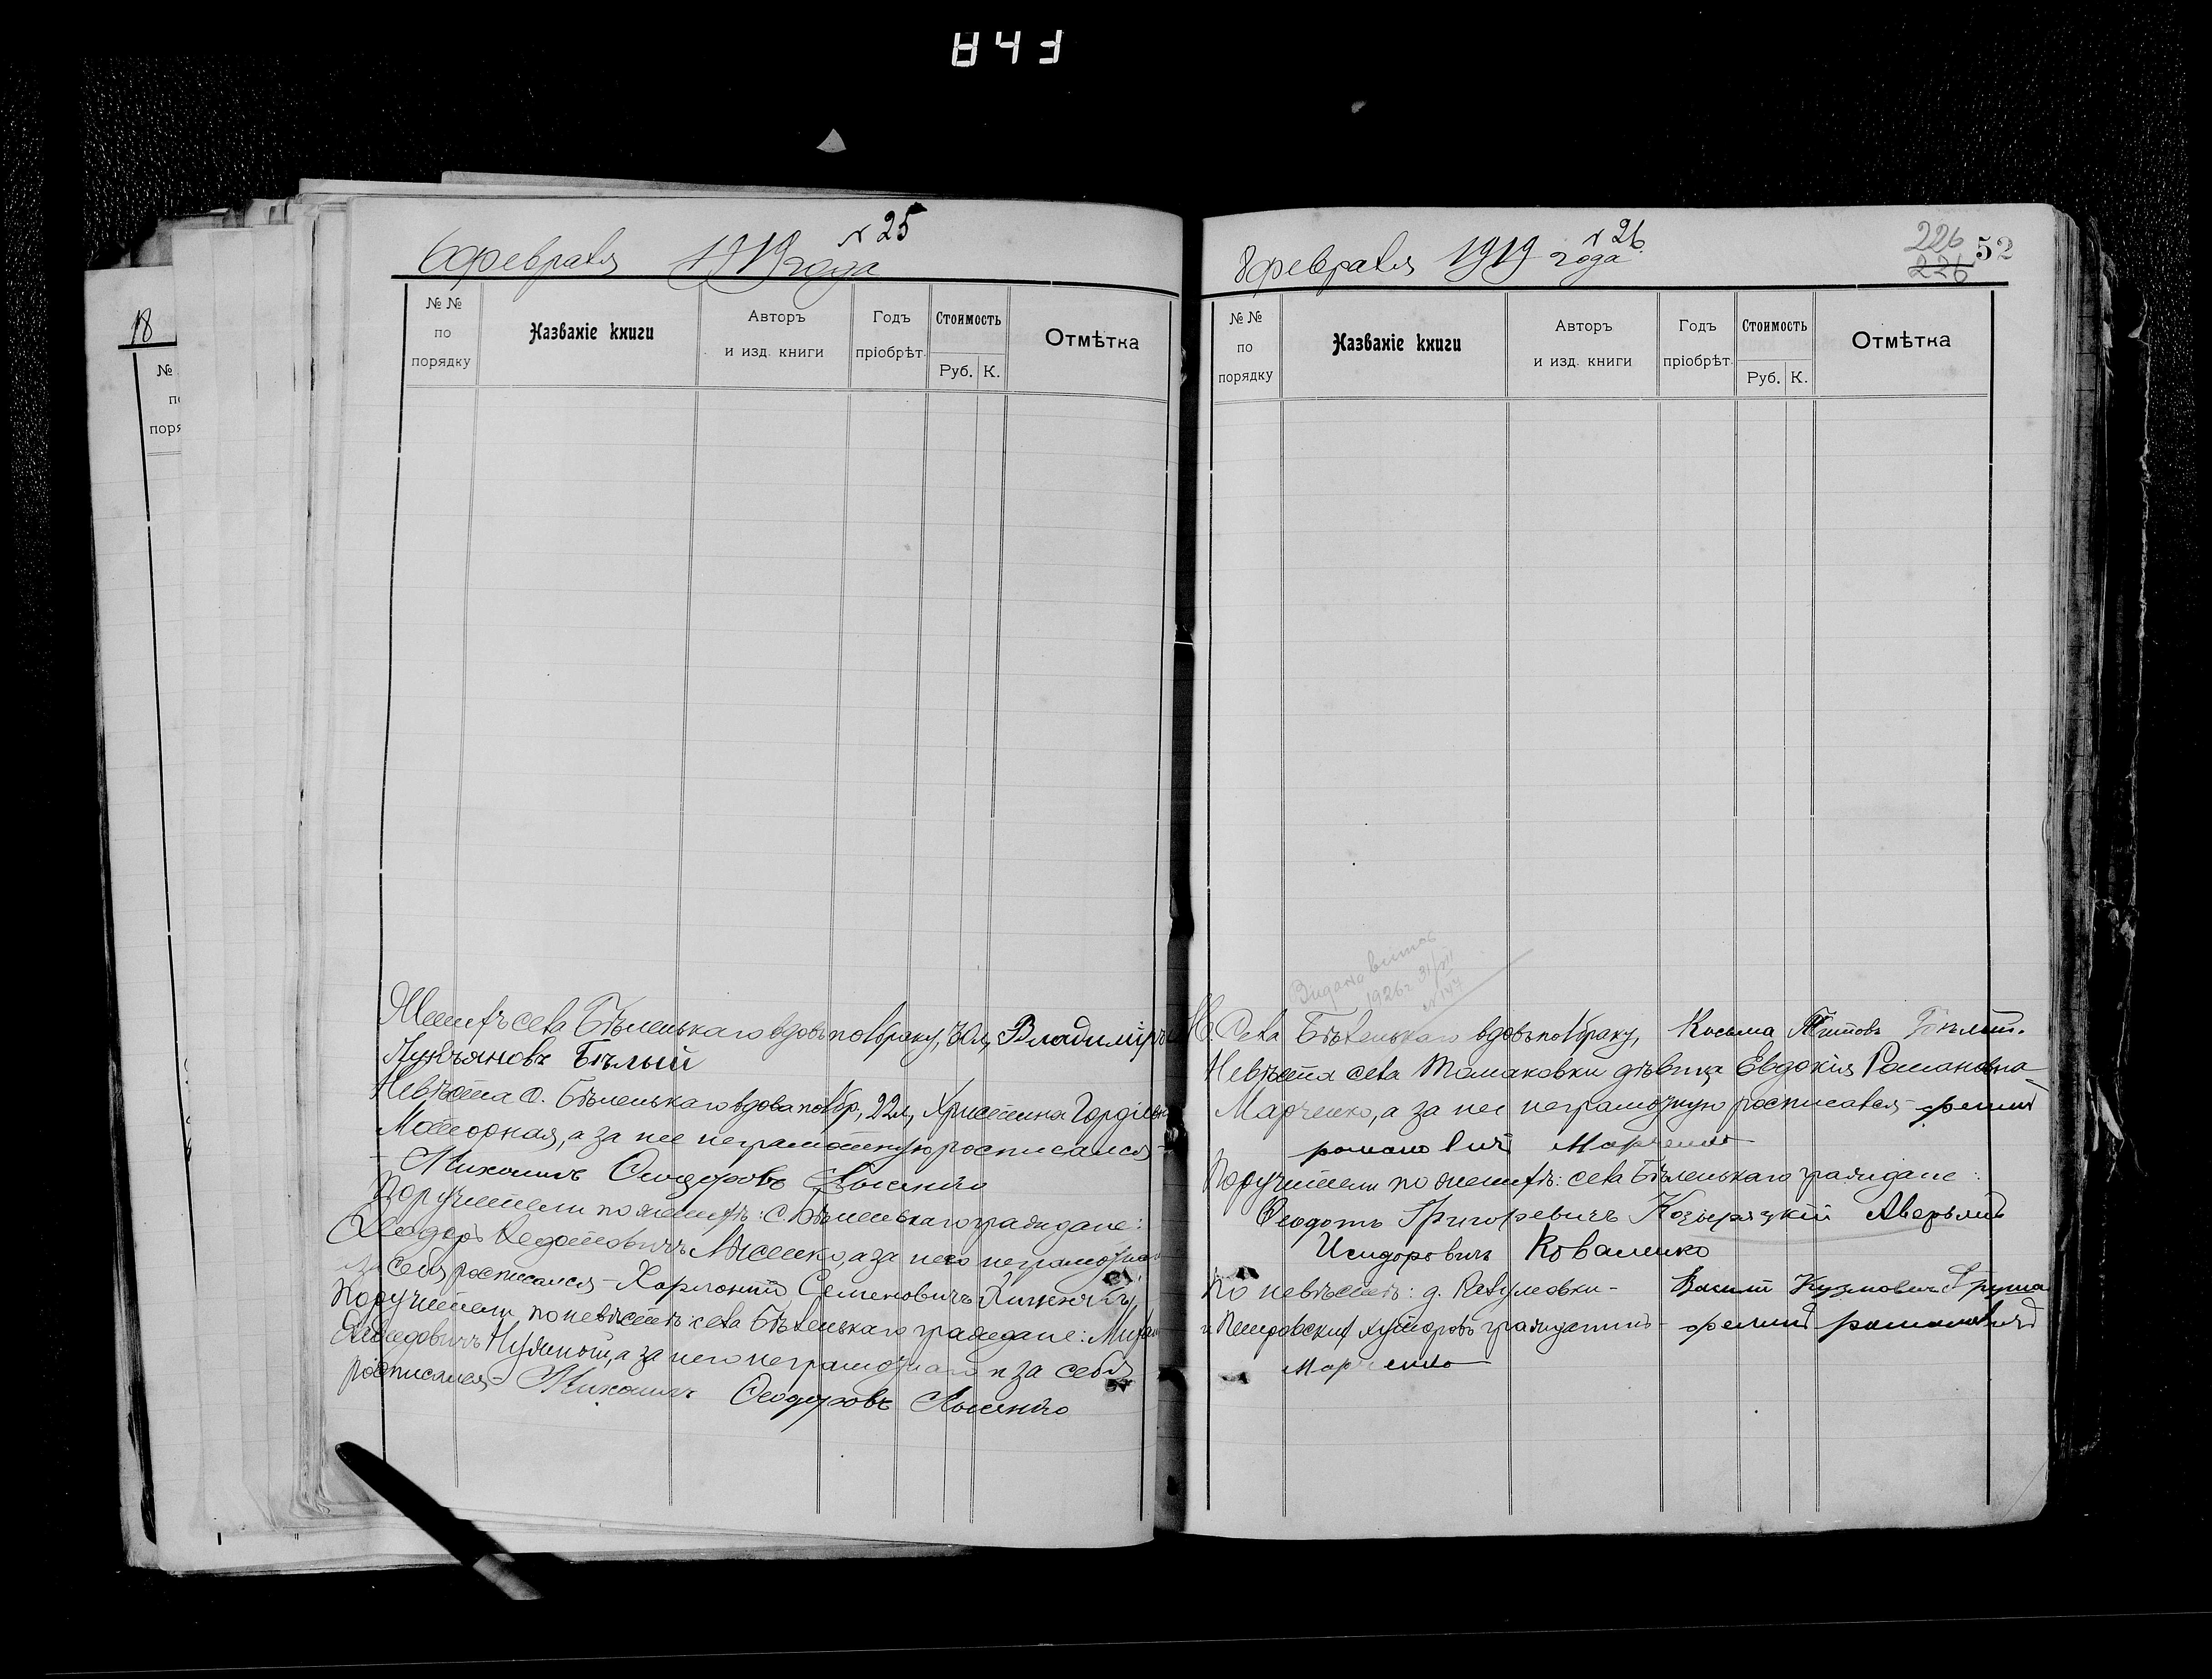 N 25
6 февраля 1919 года
№ №
по
порядку
Названіе книги
Авторъ
и изд. книги
Годъ
пріобрѣт.
Стоимость
Руб. К.
Отмѣтка
Женихъ села Бѣленькаго вдовъ по І браку, 30 л, Владиміръ
Лукьяновъ Бѣлый
Невѣста с. Бѣленькаго вдова по І бр, 22 л, Христина
Моторная, а за нее неграмотную росписался -
Михаилъ Феодоровъ Лысенко
Поручители по женихѣ: с. Бѣленькаго граждане:
Феодоръ Федотовичъ Лысенко, а за него
за себя росписался - Харлампій Семеновичъ
Поручители по невѣстѣ: села Бѣленькаго граждане:
а за него неграмотнаго и за себя
росписался - Михаилъ Феодоровъ Лысенко
N 26
8 февраля 1919 года
226
226
52
№ №
по
порядку
Названіе книги
Авторъ
и изд. книги
Годъ
пріобрѣт.
Стоимость
Руб. К.
Отмѣтка
1926 г. 31/VII
Ж. Села Бѣленькаго вдовъ по І браку, Косьма Титовъ Бѣлый.
Невѣста села Томаковки дѣвица Евдокія Романовна
Марченко, а за нее неграмотную росписался -
романович Марченко
Поручители по женихѣ: села Бѣленькаго граждане:
Феодотъ Григоревичъ Козыряцкій Аверьянъ
Исидоровичъ Коваленко
По невѣстѣ: д. Разумовки - Василій Кузмовичъ Груша
и Петровскихъ хуторовъ гражданинъ - романович
Марченко